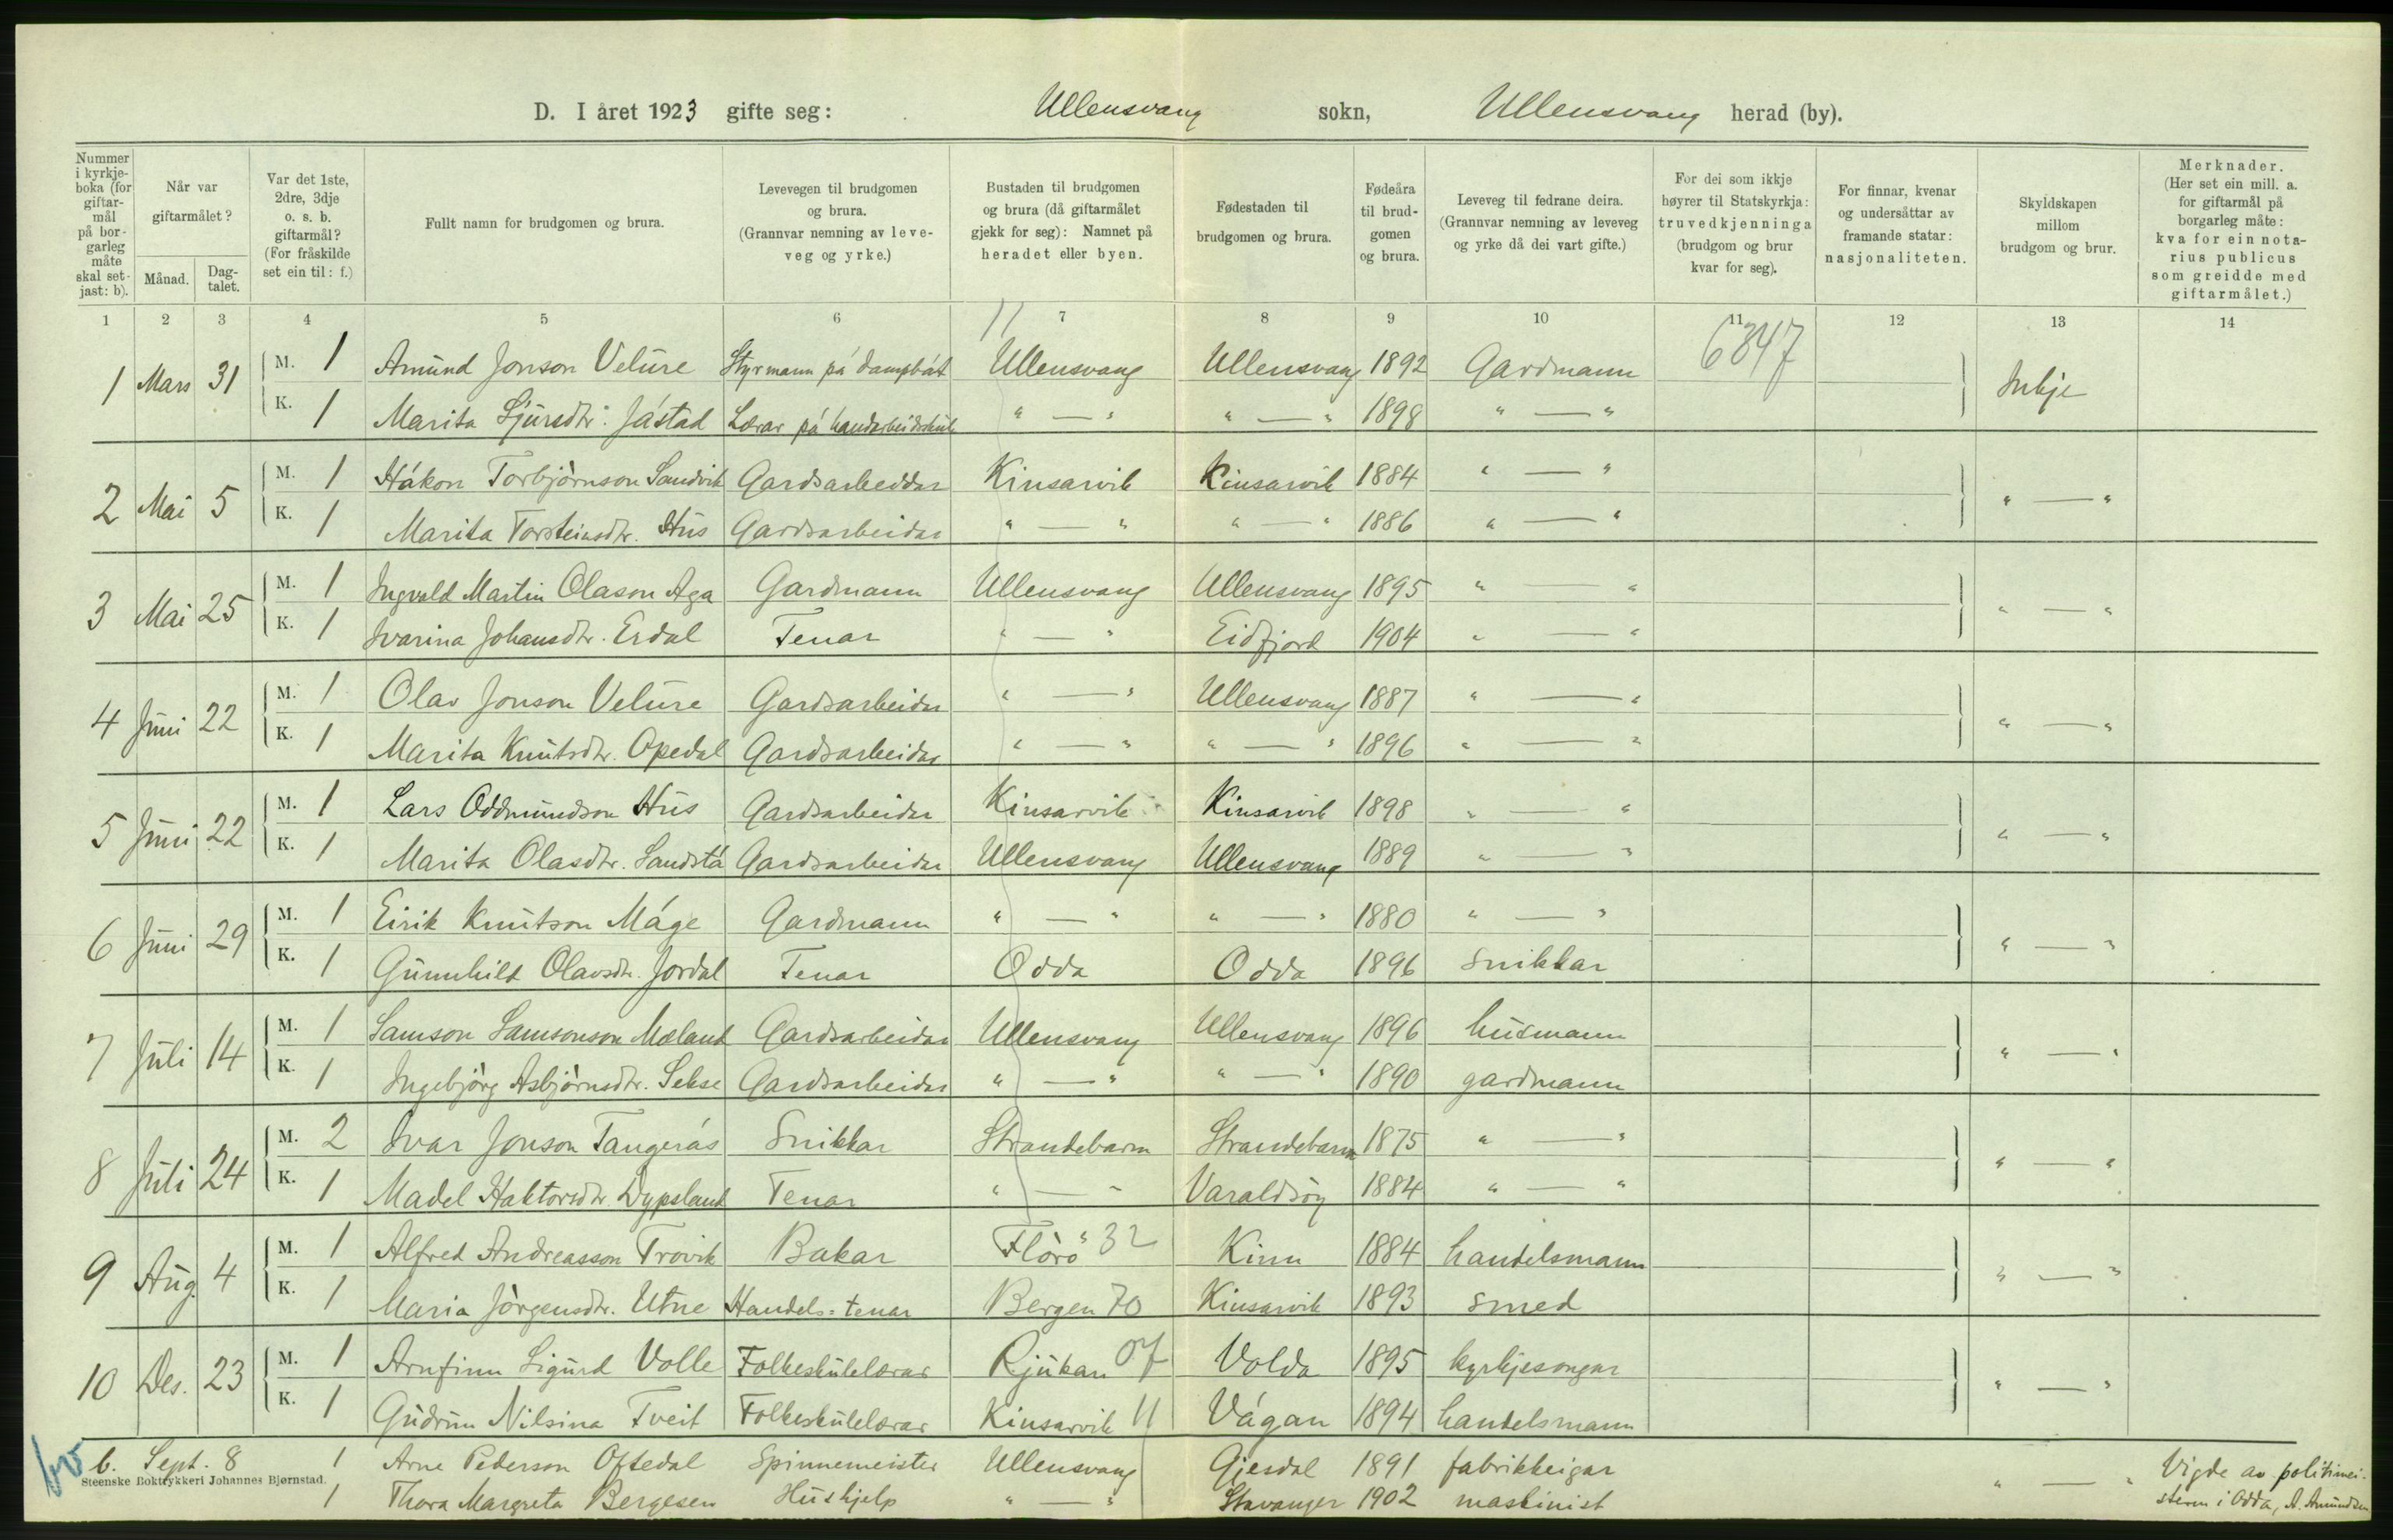 D. I året 1923 gifte seg: Ullensvang sokn, Ullensvang herad (by).
Nummer i kyrkjeboka (for giftarmål på borgarleg måte skal setjast: b).
Når var giftarmålet?
Månad. Dagtalet.
Var det 1ste, 2dre, 3dje o. s. b. giftarmål? (For fråskilde set ein til: f.)
Fullt namn for brudgomen og brura.
Levevegen til brudgomen og brura. (Grannvar nemning av leveveg og yrke.)
Bustaden til brudgomen og brura (då giftarmålet gjekk for seg): Namnet på heradet eller byen.
Fødestaden til brudgomen og brura.
Fødeåra til brudgomen og brura.
Leveveg til fedrane deira. (Grannvar nemning av leveveg og yrke då dei vart gifte.)
For dei som ikkje høyrer til Statskyrkja: truvedkjenninga (brudgom og brur kvar for seg).
For finnar, kvenar og undersåttar av framande statar: nasjonaliteten.
Skyldskapen millom brudgom og brur.
Merknader. (Her set ein mill. a. for giftarmål på borgarleg måte: kva for ein notarius publicus som greidde med giftarmålet.)
1 2 3 4 5 6 7 8 9 10 11 12 13 14
11 6847
1 Mars 31 M. 1 Amund Jonson Velure Styrmann på dampbåt Ullensvang Ullensvang 1892 Gardmann Inkje
K. 1 Marita Sjursdtr. Jåstad Lærar på handarbeidskule " — " " — " 1898 " — "
2 Mai 5 M. 1 Håkon Torbjörnson Sandvik Gardsarbeidar Kinsarvik Kinsarvik 1884 " — " " — "
K. 1 Marita Torsteinsdtr. Hus Gardsarbeidar " — " " — " 1886 " — "
3 Mai 25 M. 1 Ingvald Martin Olason Aga Gardmann Ullensvang Ullensvang 1895 " — " " — "
K. 1 Ivarina Johansdtr. Erdal Tenar " — " Eidfjord 1904 " — "
4 Juni 22 M. 1 Olav Jonson Velure Gardsarbeidar " — " Ullensvang 1887 " — " " — "
K. 1 Marita Knutsdtr. Opedal Gardsarbeidar " — " " — " 1896 " — "
5 Juni 22 M. 1 Lars Oddmundson Hus Gardsarbeidar Kinsarvik Kinsarvik 1898 " — " " — "
K. 1 Marita Olasdtr. Sandstå Gardsarbeidar Ullensvang Ullensvang 1889 " — "
6 Juni 29 M. 1 Eirik Knutson Måge Gardmann " — " " — " 1880 " — " " — "
K. 1 Gunnhild Olavsdtr. Jordal Tenar Odda Odda 1896 Snikkar
7 Juli 14 M. 1 Samson Samsonson Mæland Gardsarbeidar Ullensvang Ullensvang 1896 husmann " — "
K. 1 Ingebjörg Asbjörnsdtr. Sekse Gardsarbeidar " — " " — " 1890 gardmann
8 Juli 24 M. 2 Ivar Jonson Tangerås Snikkar Strandebarm Strandebarm 1875 " — " " — "
K. 1 Madel Haktorsdtr. Dypsland Tenar " — " Varaldsöy 1884 " — "
9 Aug. 4 M. 1 Alfred Andreasson Trovik Bakar Florö 32 Kinn 1884 handelsmann " — "
K. 1 Maria Jörgensdtr. Utne Handels=tenar Bergen 70 Kinsarvik 1893 smed
10 Des. 23 M. 1 Arnfinn Sigurd Volle Folkeskulelærar Rjukan 07 Volda 1895 kyrkjesongar " — "
K. 1 Gudrun Nilsina Tveit Folkeskulelærar Kinsarvik 11 Vågan 1894 handelsmann
b. Sept. 8 1 Arne Pederson Oftedal Spinnemeister Ullensvang Gjesdal 1891 fabrikkeigar " — " Vigde av politimei-
Steenske Boktrykkeri Johannes Bjørnstad.
1 Thora Margreta Bergesen Hushjelp " — " Stavanger 1902 maskinist steren i Odda, A. Amundsen